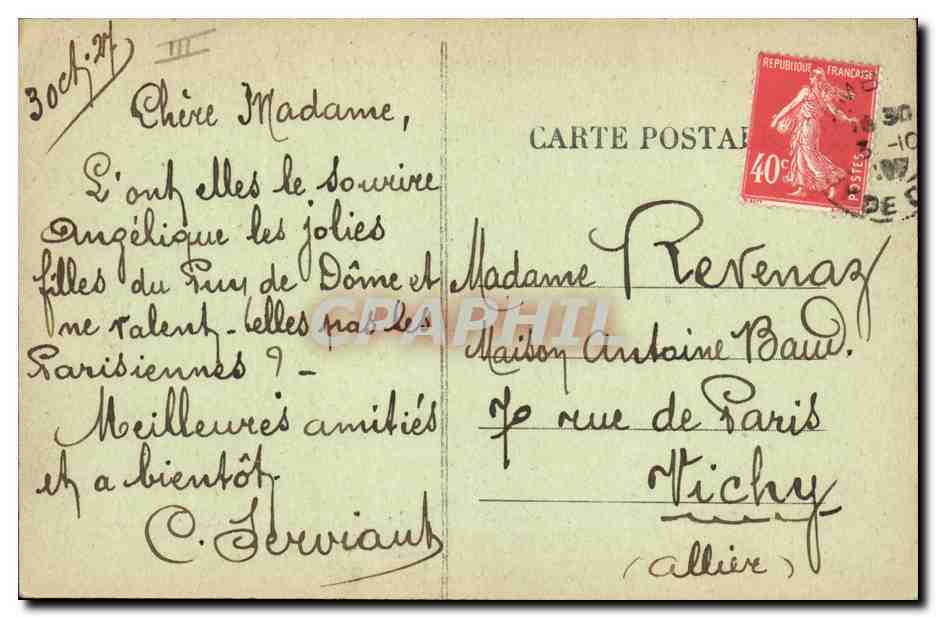 3 Oct. 27
III
Chère Madame,
L'ont elles le sourire
angélique les jolies
filles du Puy de Dôme et
ne valent-elles pas les
Parisiennes ? -
Meilleures amitiés
et a bientôt.
C. Serviant
CARTE POSTA
REPUBLIQUE FRANÇAISE
40c
POSTES
30
3 -10
DE
Madame Revenaz
Maison Antoine Baud.
7 rue de Paris
Vichy
(Allier)
CPAPHIL